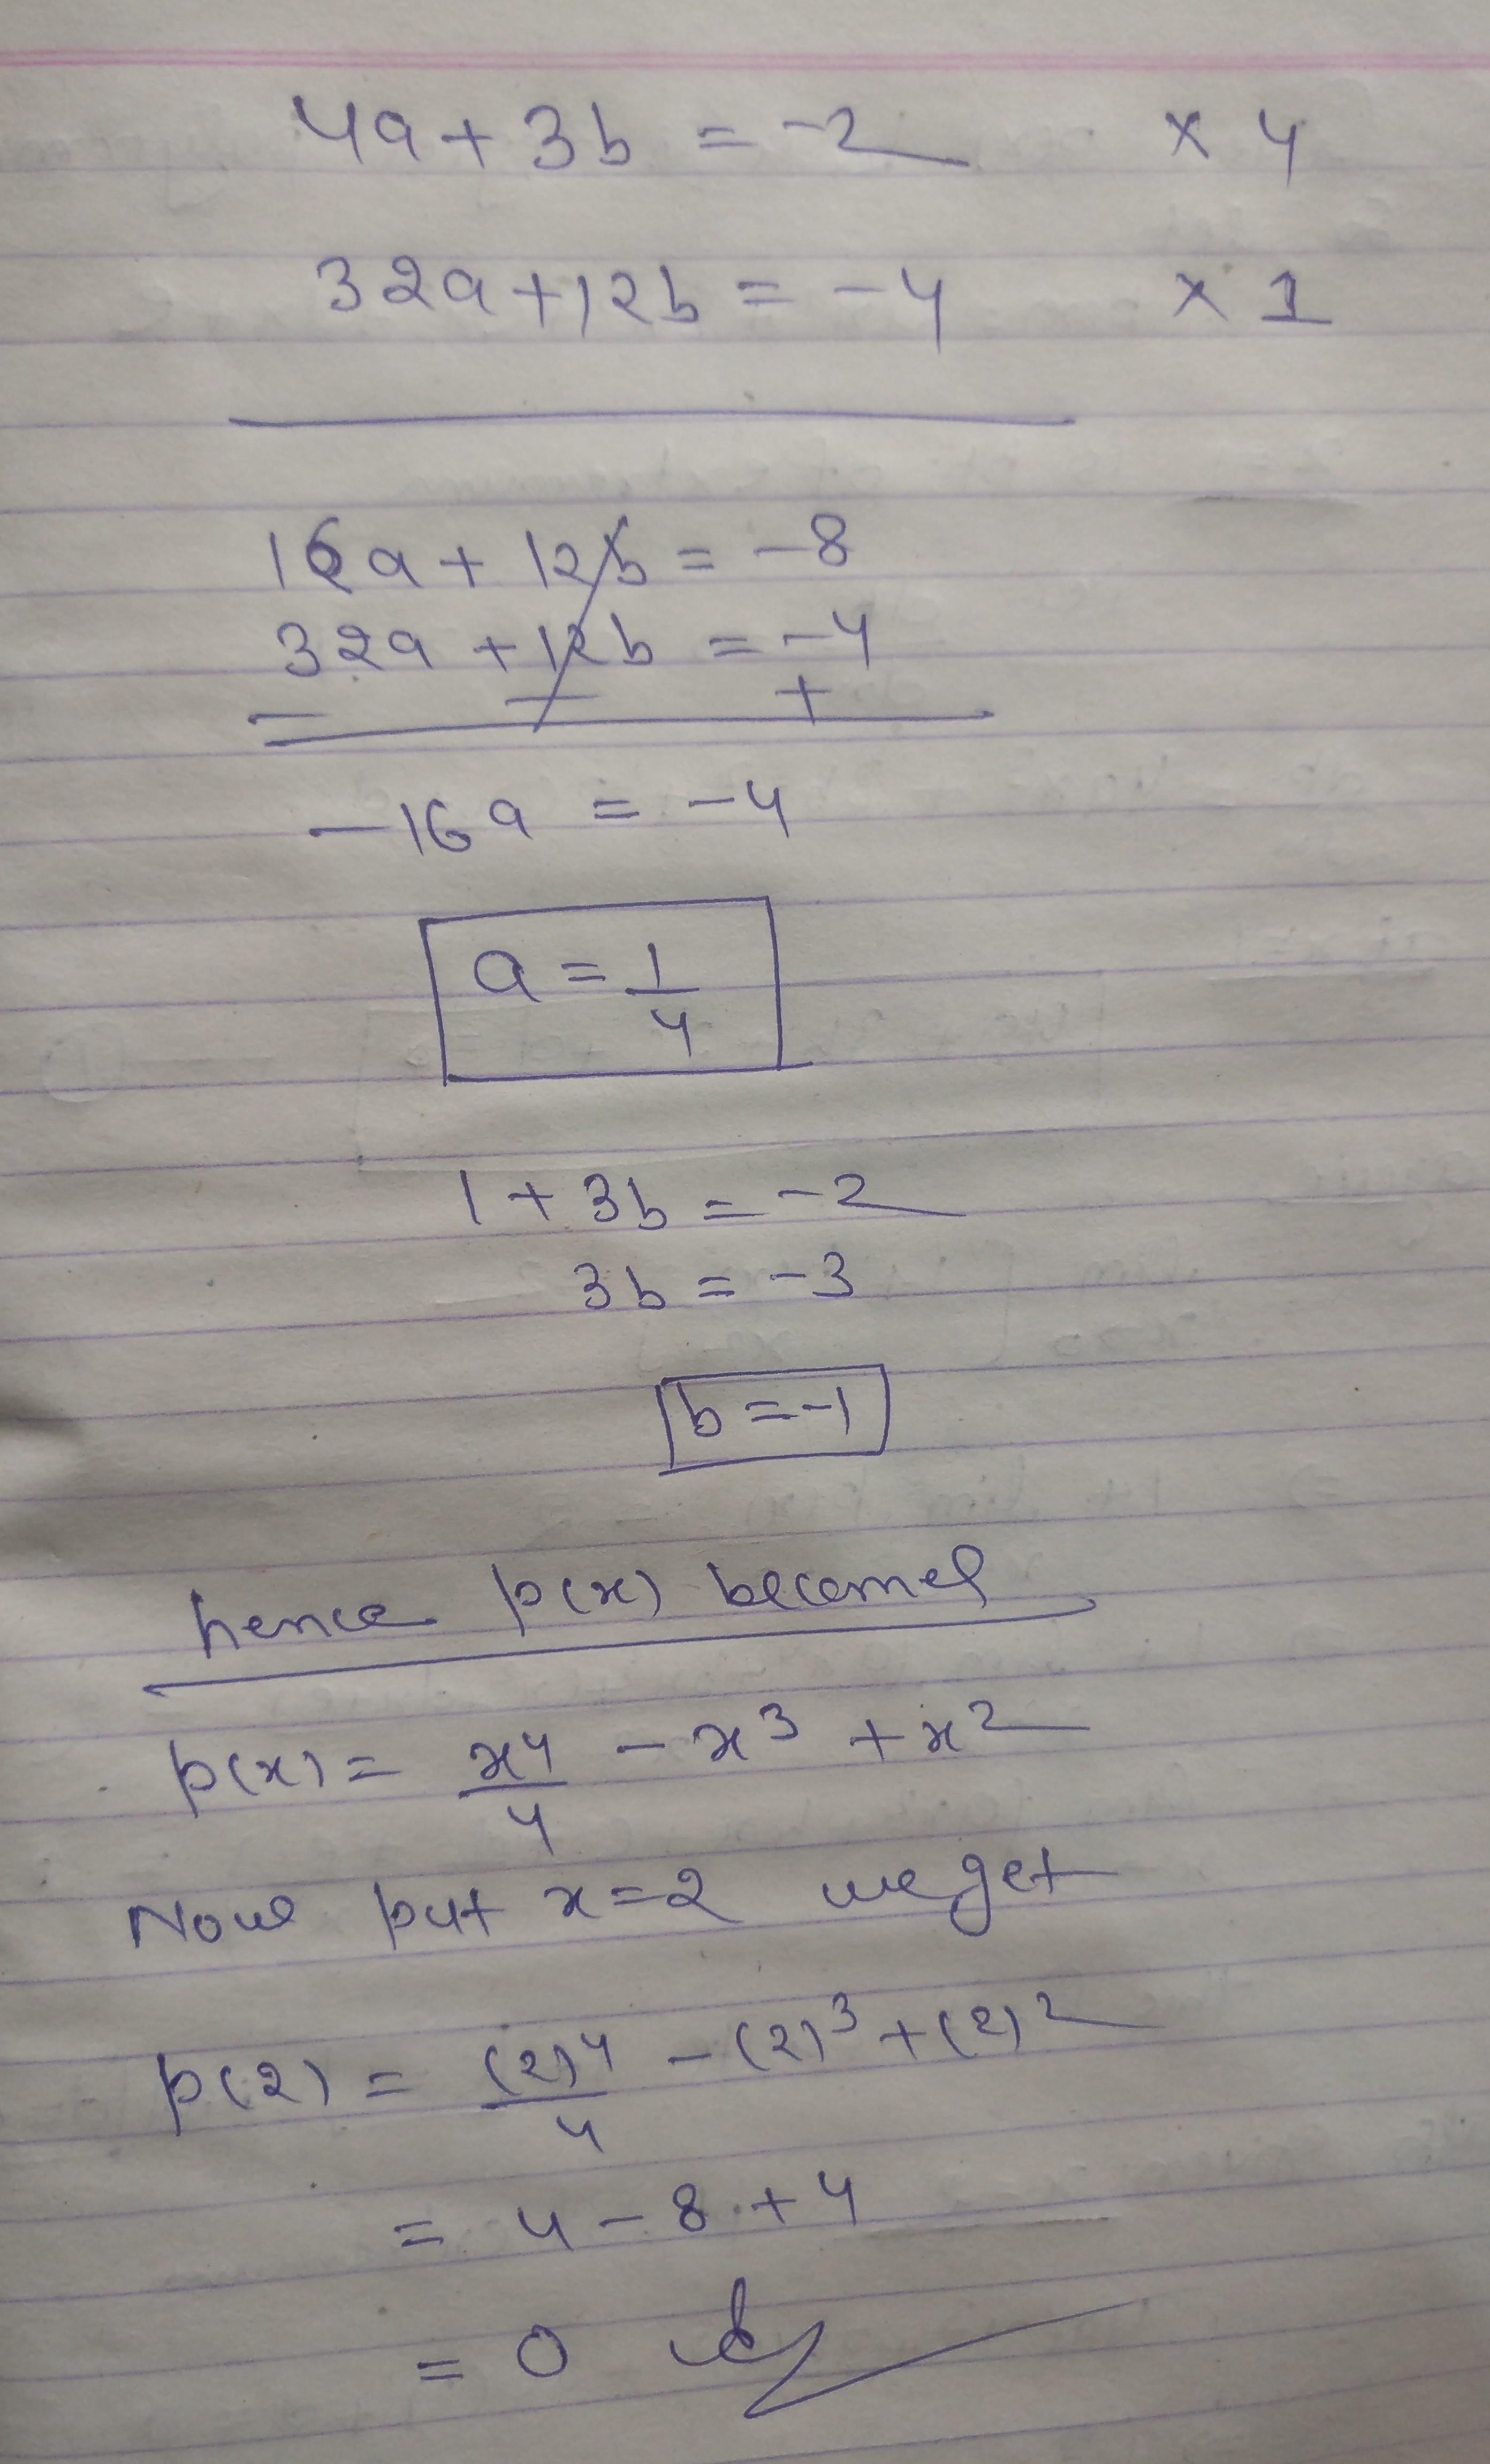 4a + 3b = -2 × 4
32a + 12b = -4 × 1
16a + 12b = -8
32a + 12b = -4
- - +
-16a = -4
a = 1/4
1 + 3b = -2
3b = -3
b = -1
hence p(x) becomes
p(x) = x⁴/4 - x³ + x²
Now put x = 2 we get
p(2) = (2)⁴/4 - (2)³ + (2)²
= 4 - 8 + 4
= 0